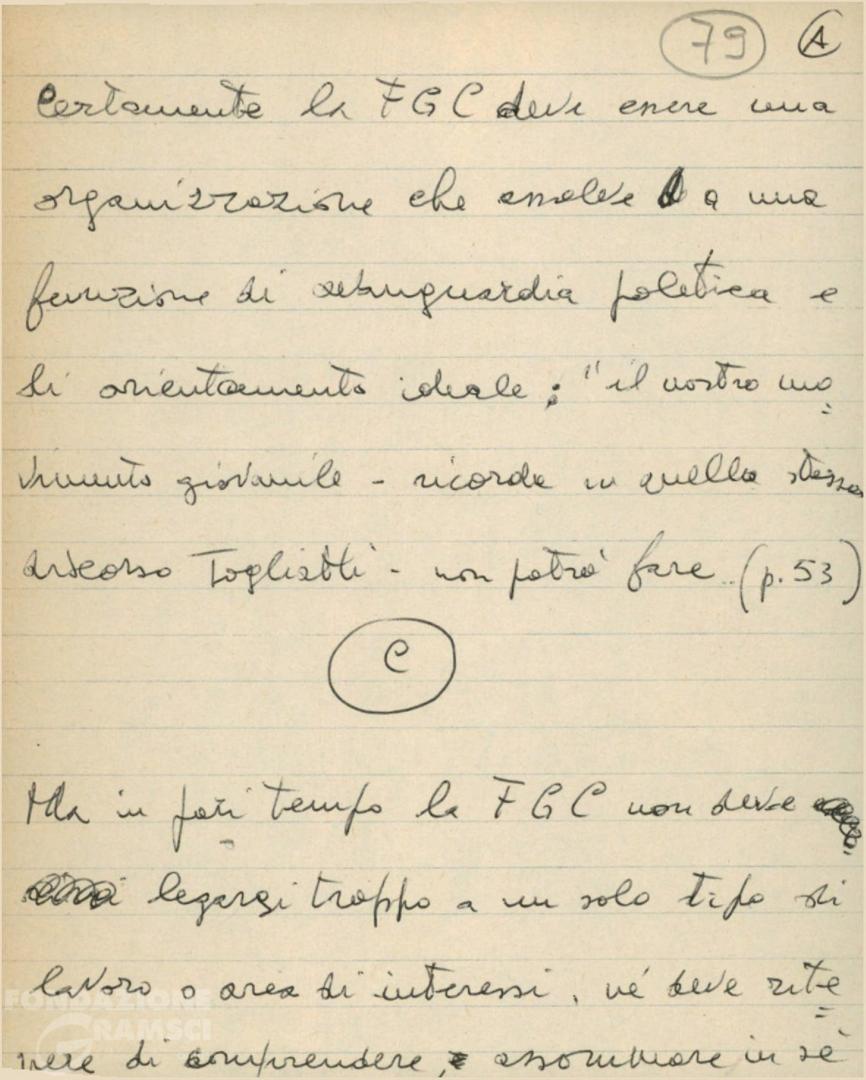 79 A
Certamente la FGC deve essere una
organizzazione che assolve a una
funzione di avanguardia politica e
di orientamento ideale: "il nostro mo=
vimento giovanile - ricorda in quello stesso
discorso Togliatti - non potrà fare.. (p. 53)
C
Ma in pari tempo la FGC non deve
legarsi troppo a un solo tipo di
lavoro o area di interessi, né deve rite=
nere di comprendere, e assommare in sé
FONDAZIONE
GRAMSCI